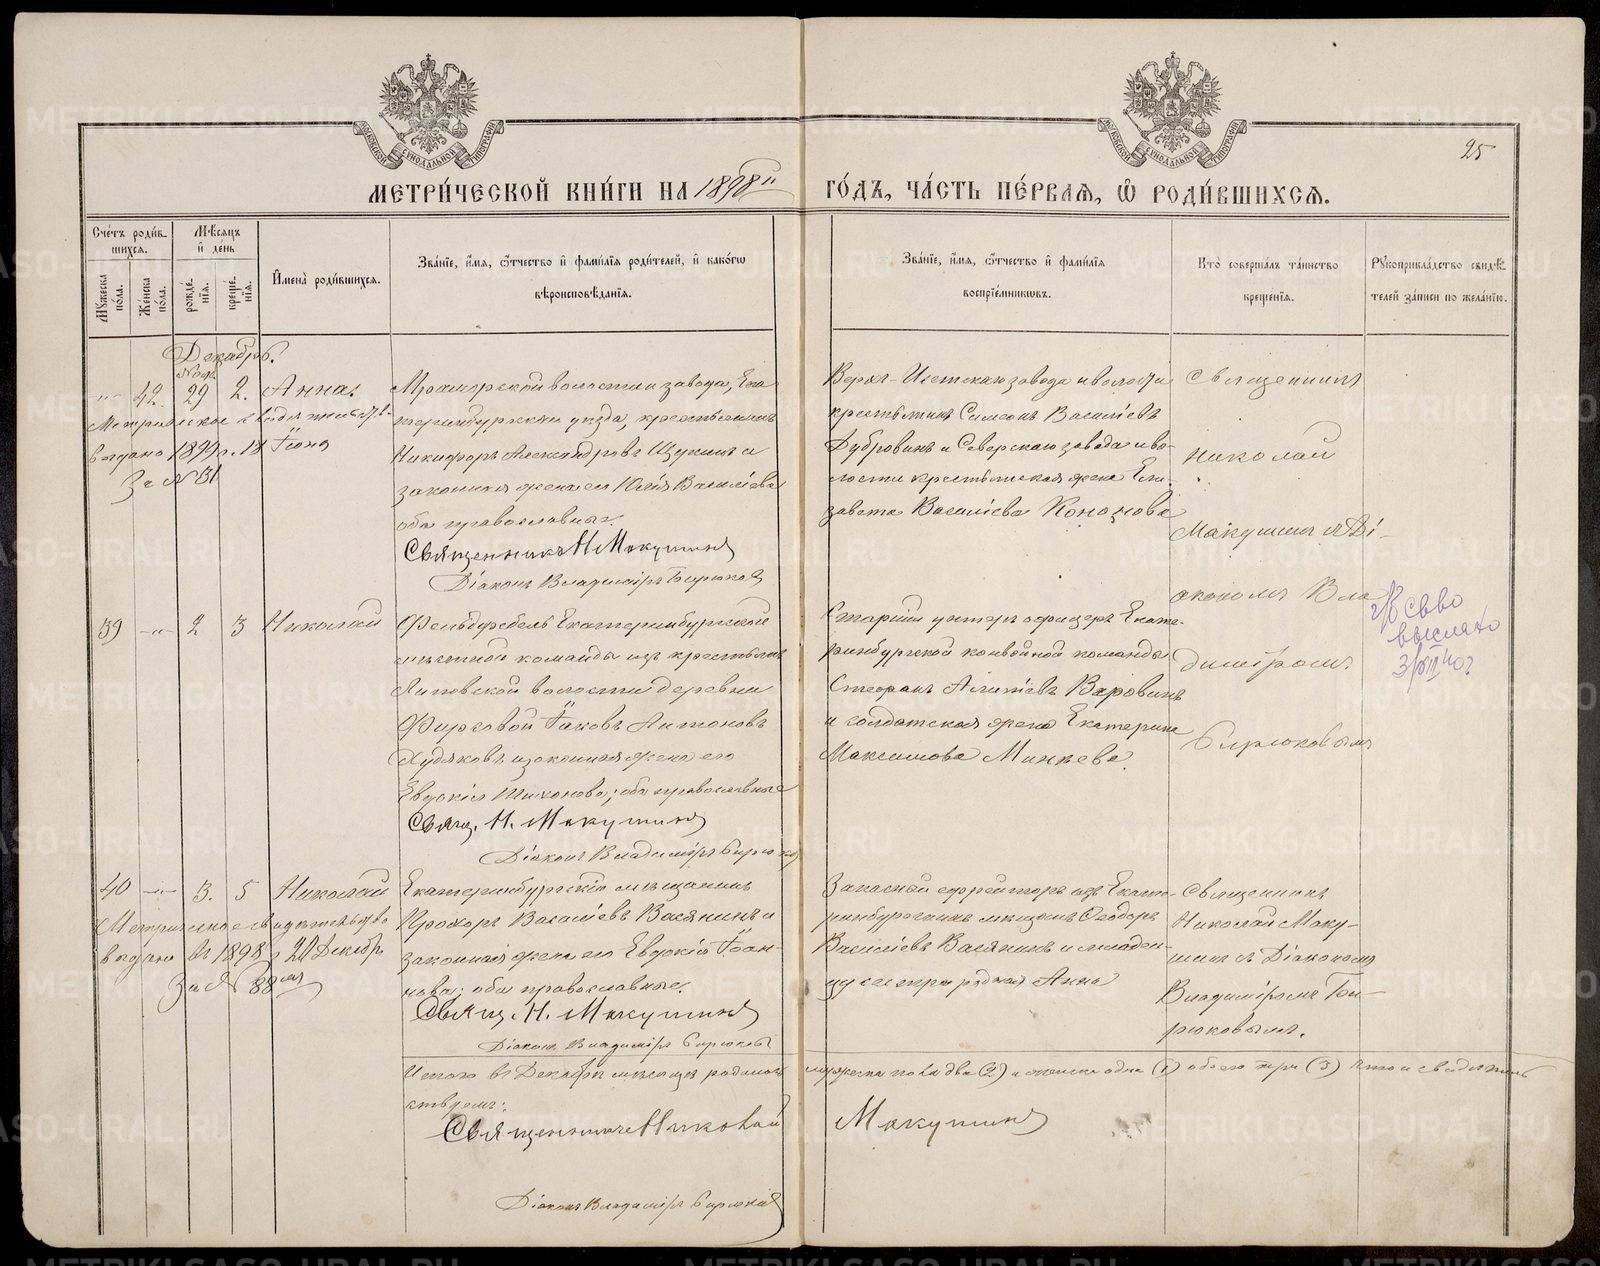 МОСКОВСКОЙ СѴНОДАЛЬНОЙ ТИПОГРАФІИ
МОСКОВСКОЙ СѴНОДАЛЬНОЙ ТИПОГРАФІИ
25
МЕТРИ́ЧЕСКОЙ КНИ́ГИ НА 1898й ГО́ДЪ, ЧА́СТЬ ПЕ́РВАѦ, Ѡ҆ РОДИ́ВШИХСѦ.
Сче́тъ роди́в-
шихсѧ.
Мѣ́сѧцъ
и҆ де́нь
Мꙋ́жеска по́ла.
Же́нска по́ла.
рожде́-
нїѧ.
креще́-
нїѧ.
И҆мена̀ роди́вшихсѧ.
Зва́нїе, и҆́мѧ, ѻ҆́тчество и҆ фами́лїѧ роди́телей, и҆ како́гѡ
вѣроисповѣ́данїѧ.
Зва́нїе, и҆́мѧ, ѻ҆́тчество и҆ фами́лїѧ
воспрїе́мникѡвъ.
Кто̀ соверша́лъ та́инство
креще́нїѧ.
Рꙋкоприкла́дство свидѣ́-
телей за́писи по жела́нїю.
Декабрь.
Нояб.
-"- 42. 29 2. Анна.
Метрическое свидѣтельство
выдано 1899 г. 18 Іюня
За № 81
Мраморской волости и завода, Ека-
теринбургскаго уѣзда, крестьянинъ
Никифоръ Александровъ Щукинъ и
законная жена его Юлія Васильева
оба православные.
Священникъ Н. Макушинъ
Діаконъ Владиміръ Бирюковъ
Верхъ-Исетскаго завода и волости
крестьянинъ Симеонъ Василіевъ
Дубровинъ и Северскаго завода и во-
лости крестьянская жена Ели-
завета Василіева Кононова
Священникъ
Николай
Макушинъ съ Ді-
акономъ Вла-
диміромъ
Бирюковымъ
39 -"- 2 3 Николай
Фельдфебель Екатеринбургской
мѣстной команды изъ крестьянъ
волости деревни
Фирсовой Іаковъ Антоновъ
Худяковъ и законная жена его
Евдокія Тихонова; оба православные
Свящ. Н. Макушинъ
Діаконъ Владиміръ Бирюковъ
Старшій унтеръ офицеръ Екате-
ринбургской конвойной команды
Стефанъ Воровинъ
и солдатская жена Екатерина
Максимова Минеева.
св-во
выслано
40 -"- 3. 5 Николай
Метрическое свидѣтельство
выдано въ 1898 г. 20 Декабр
За № 88мъ
Екатеринбургскій мѣщанинъ
Прохоръ Василіевъ Васянинъ и
законная жена его Евдокія Іоан-
нова; оба православные.
Свящ. Н. Макушинъ
Діаконъ Владиміръ Бирюковъ
Запасный ефрейторъ изъ Екате-
ринбургскихъ мѣщанъ Ѳеодоръ
Василіевъ Васянинъ и младен-
цу сестра родная Анна
Священникъ
Николай Маку-
шинъ съ Діакономъ
Владиміромъ Би-
рюковымъ.
Итого въ Декабрѣ мѣсяцѣ родилось мужеска пола два (2) а женска одна (1) обоего три (3) что и свидѣтель-
ствуемъ:
Священникъ Николай Макушинъ
Діаконъ Владиміръ Бирюковъ